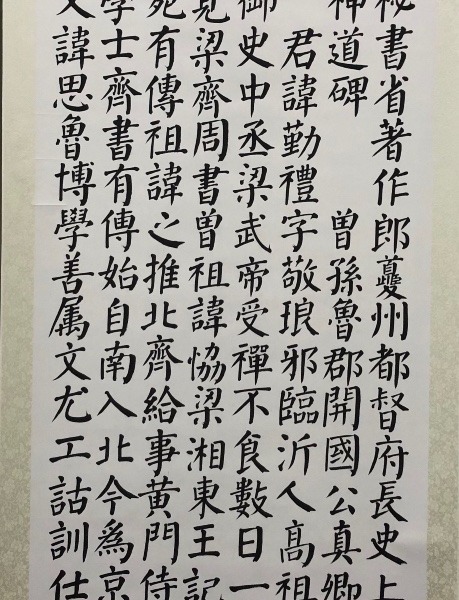 秘書省著作郎夔州都督府長史上
神道碑 曾孫魯郡開國公真卿
君諱勤禮字敬琅邪臨沂人高祖
御史中丞梁武帝受禪不食數日一
見梁齊周書曾祖諱恊梁湘東王記
苑有傳祖諱之推北齊給事黄門侍
學士齊書有傳始自南入北今爲京
父諱思魯博學善属文尤工詁訓仕